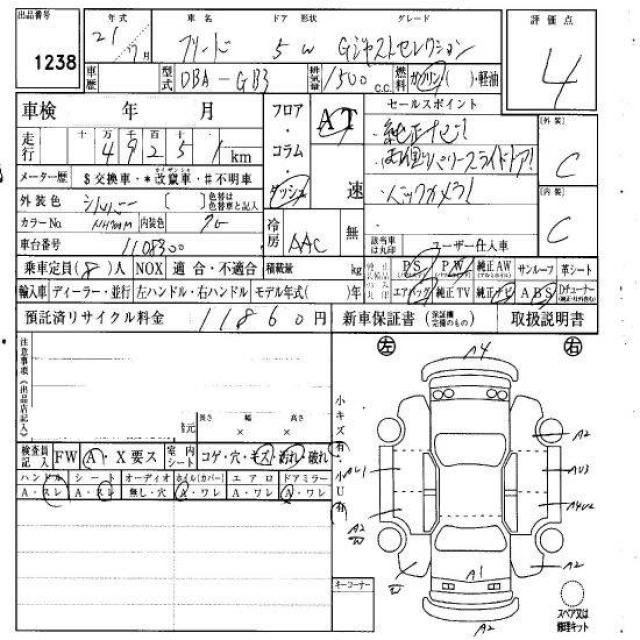 出品番号 年式 車名 ドア 形状 グレード 評価点
1238 21 7月 フリード 5 W Gジャストセレクション 4
車歴 型式 DBA-GB3 排気量 1500 c.c. 燃料 ガソリン・( )・軽油
車検 年 月 フロア・コラム・ダッシュ AT 速 セールスポイント
走行 十 万 千 百 十 一 [外装]
4 9 2 5 1 km ・純正ナビ! C
メーター歴 $交換車・*改竄車・#不明車 ・両側パワースライドドア!
外装色 シルバー [ ] 色替は色替車と記入 ・バックカメラ! [内装]
カラーNo. NH700M 内装色 グレー 冷房 AAC 無 C
車台番号 1108300 該当車は丸印 ユーザー仕入車
乗車定員(8)人 NOX 適合・不適合 積載量 kg PS PW 純正AW サンルーフ 革シート
輸入車 ディーラー・並行 左ハンドル・右ハンドル モデル年式( )年 エアバッグ 純正TV 純正ナビ ABS Dチューナー
預託済リサイクル料金 11860円 新車保証書 (保証欄完備のもの) 取扱説明書
注意事項(出品店記入) 左 右
諸元 長さ 幅 高さ
× ×
小キズ有
検査員記入 FW A・X要ス 室内シート コゲ・穴・キズ・汚れ・破れ
小U有
ハンドル シート オーディオ ホイル(カバー) エアロ ドアミラー
A・スレ A・スレ 無し・穴 A・ワレ A・ワレ A・ワレ
A4
A2
AU1 AU3
A4U2
A2
W A2
A1
キーコーナー
A2
スペア又は修理キット